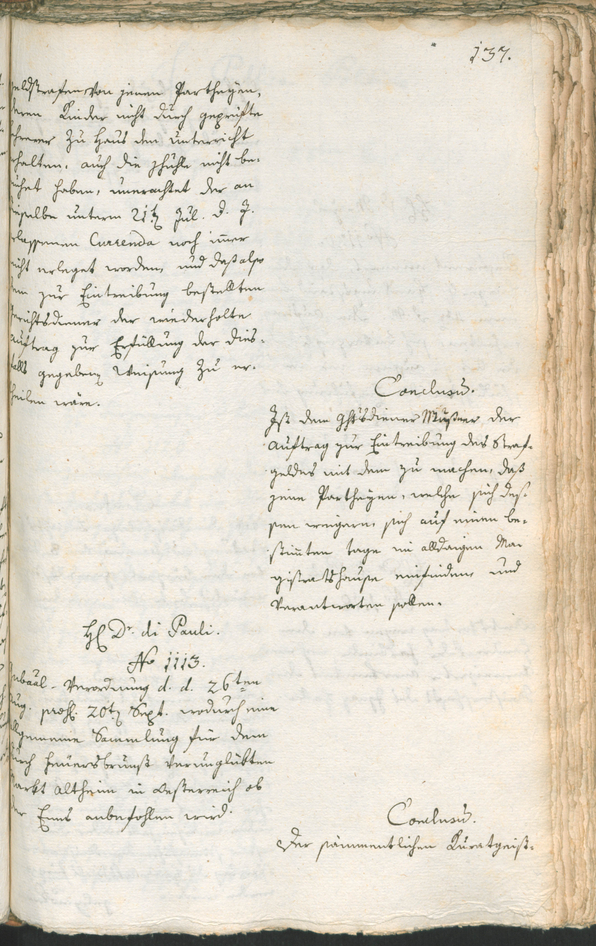 137.
geldstrafen von jenen Partheyen,
deren Kinder nicht durch geprüfte
Lehrer zu Haus den Unterricht
erhalten, auch die Schule nicht be-
suchet haben, unerachtet der an
dieselbe unterm 21t Jul. d. J.
erlassenen Currenda noch immer
nicht erleget worden, und daß also
dem zur Eintreibung bestellten
Gerichtsdiener der wiederholte
Auftrag zur Erfüllung der dies-
falls gegebenen Weisung zu er-
theilen wäre.
Conclusū.
Ist dem Ghtsdiener der
Auftrag zur Eintreibung des Straf-
geldes mit dem zu machen, daß
jene Partheyen, welche sich des-
sen weigern, sich auf einen be-
stimten tage im alldaigen Ma-
gistratshause einfinden, und
verantworten sollen.
H Dr. di Pauli.
No 1113.
Gubäal-Verordnung d. d. 26ten
Aug. 20t Sept. wodurch eine
allgemeine Sammlung für dem
durch Feuersbrunst verunglükten
Markt Altheim in Oesterreich ob
der Enns anbefohlen wird.
Conclusū.
Der sämmentlichen Kuratgeist-